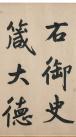 右御史
箴大德